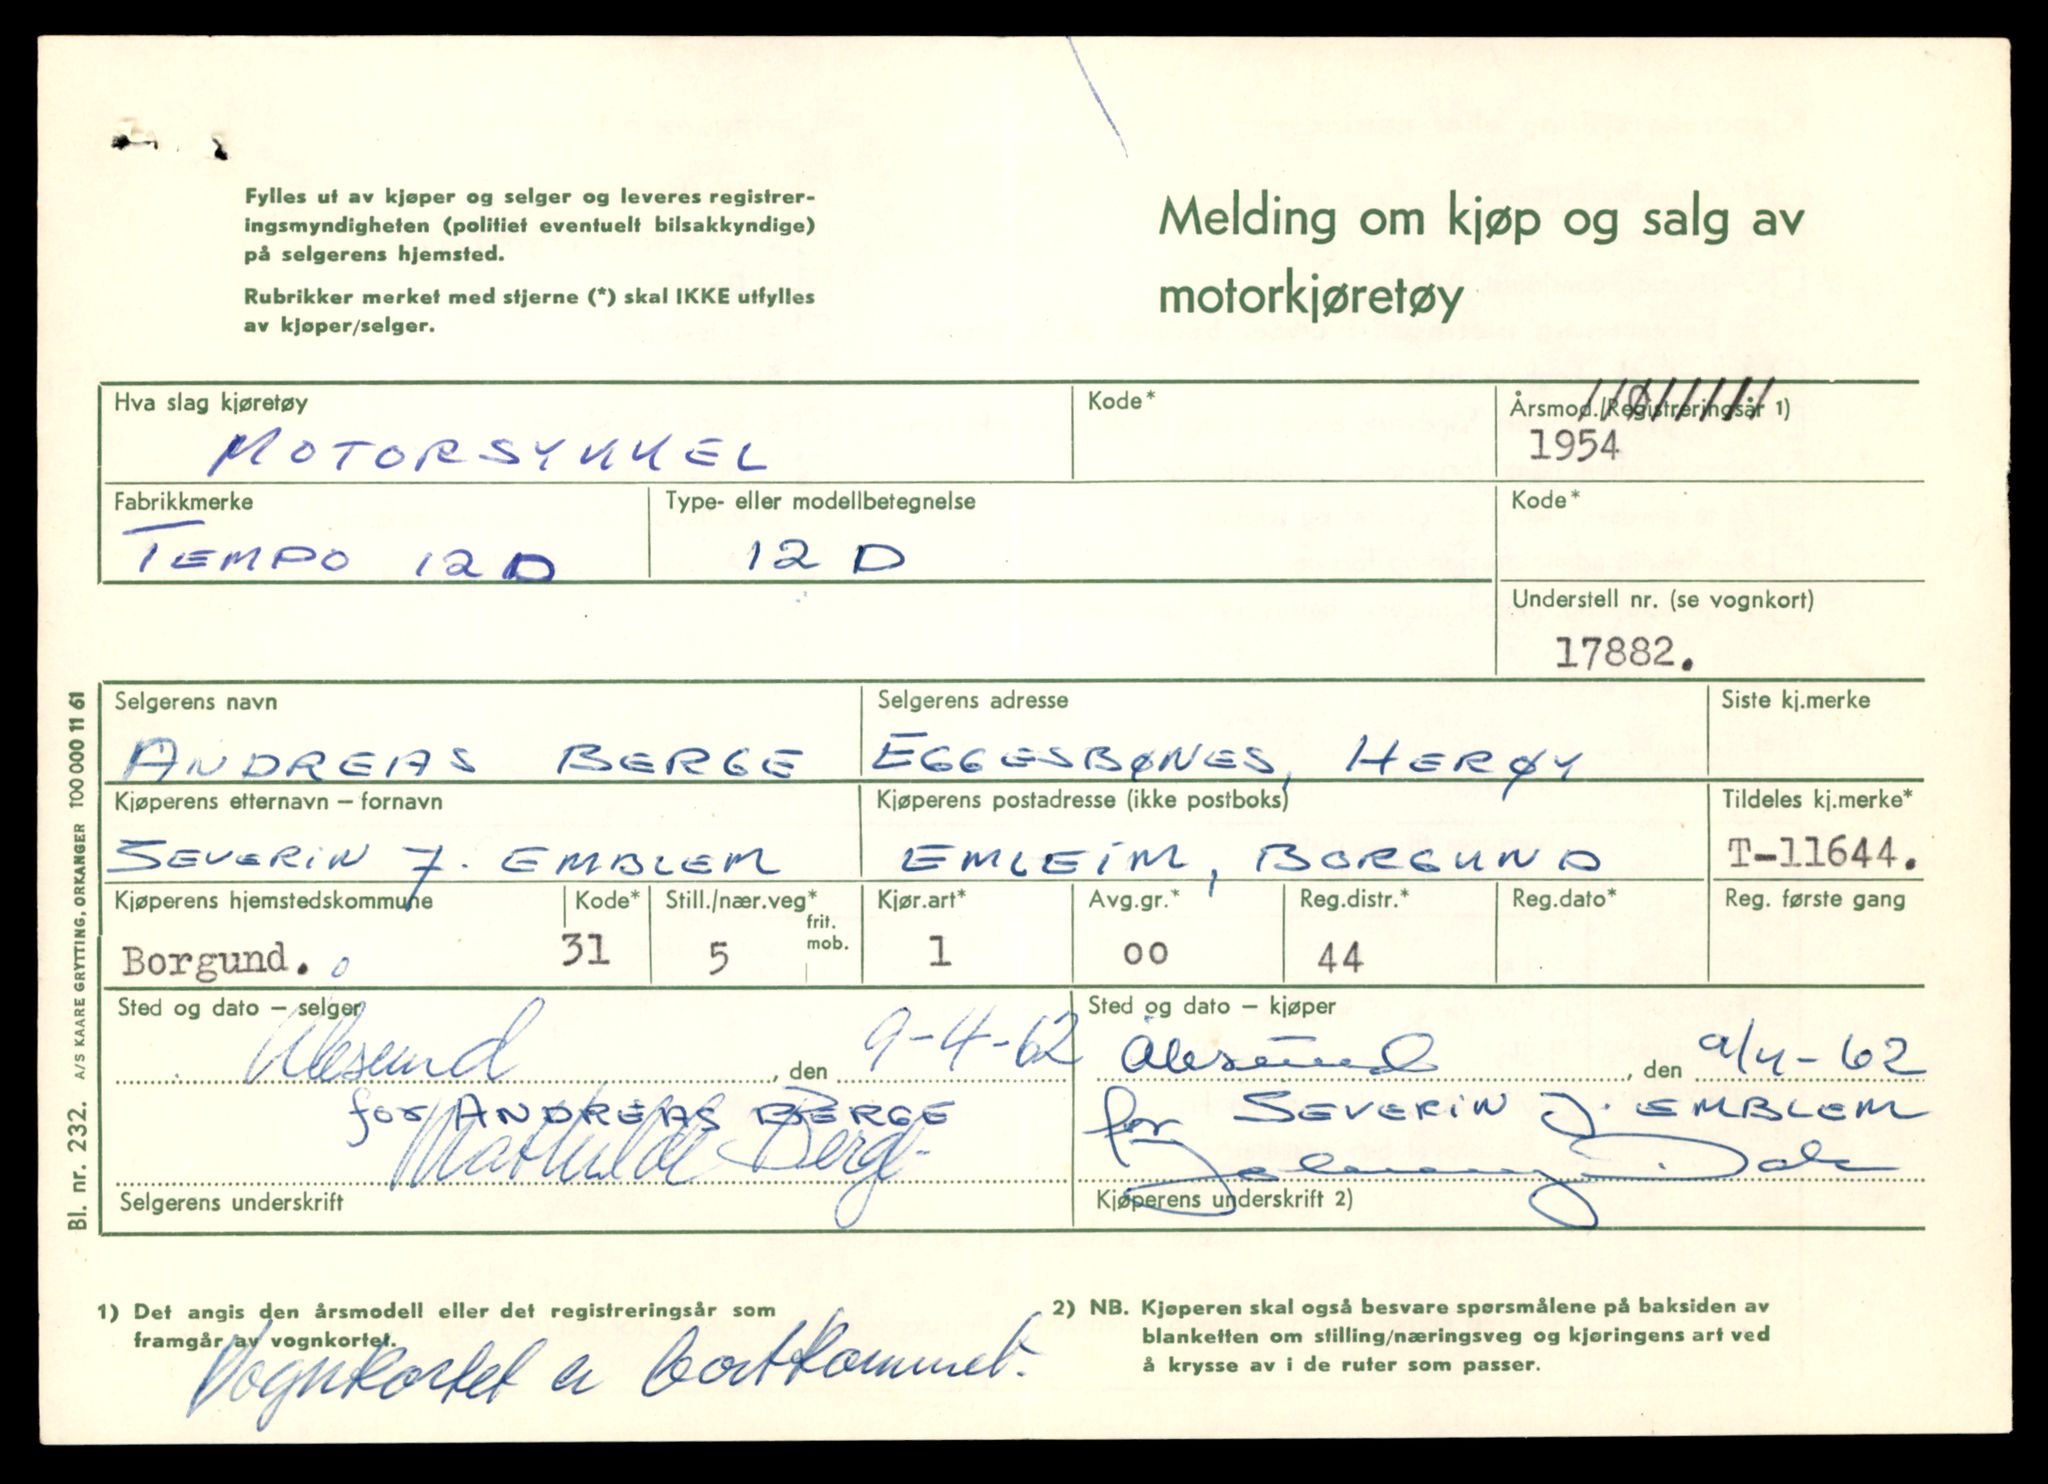 Fylles ut av kjøper og selger og leveres registrer-
ingsmyndigheten (politiet eventuelt bilsakkyndige)
på selgerens hjemsted.
Rubrikker merket med stjerne (*) skal IKKE utfylles
av kjøper/selger.
Melding om kjøp og salg av
motorkjøretøy
Hva slag kjøretøy
MOTORSYKKEL
Kode*
Årsmod./Registreringsår 1)
1954
Fabrikkmerke
TEMPO 12D
Type- eller modellbetegnelse
12 D
Kode*
Understell nr. (se vognkort)
17882.
Selgerens navn
ANDREAS BERGE
Selgerens adresse
EGGESBØNES, HERØY
Siste kj.merke
Kjøperens etternavn – fornavn
SEVERIN J. EMBLEM
Kjøperens postadresse (ikke postboks)
EMLEIM, BORGUND
Tildeles kj.merke*
T-11644.
Kjøperens hjemstedskommune
Borgund.
Kode*
31
Still./nær.veg*
frit.
mob.
5
Kjør.art*
1
Avg.gr.*
00
Reg.distr.*
44
Reg.dato*
Reg. første gang
Sted og dato – selger
Ålesund, den 9-4-62
for ANDREAS BERGE
Mathilde Berge
Selgerens underskrift
Sted og dato – kjøper
Ålesund, den 9/4-62
for SEVERIN J. EMBLEM
Kjøperens underskrift 2)
1) Det angis den årsmodell eller det registreringsår som
framgår av vognkortet.
Vognkortet er bortkommet.
2) NB. Kjøperen skal også besvare spørsmålene på baksiden av
blanketten om stilling/næringsveg og kjøringens art ved
å krysse av i de ruter som passer.
Bl. nr. 232. A/S KAARE GRYTTING, ORKANGER 100 000 11 61